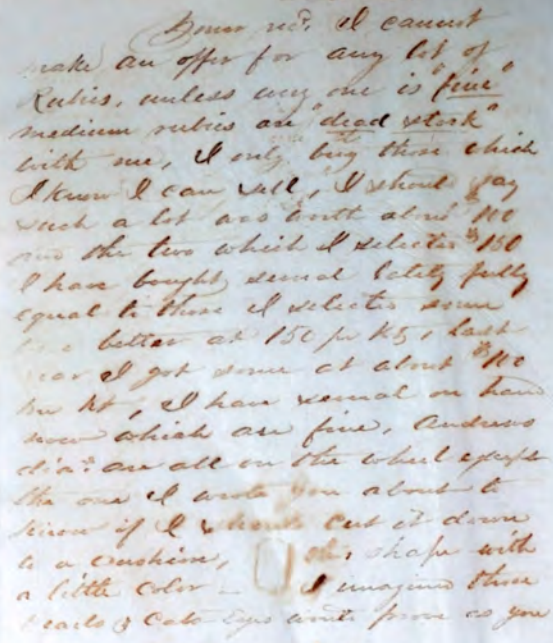 I cannot
make an offer for any lot of
Rubies, unless any one is "fine"
medium rubies are "dead stock"
with me, I only buy those which
I know I can sell, I should say
such a lot was worth about $100
the two which I selected $150
I have bought several lately fully
equal to those I selected some
better at 150 pr Kt, Last
year I got some at about $110
Kt, I have several on hand
now which are fine, Andrews
dias are all on the wheel except
the one I wrote you about to
know if I should cut it down
to a cushion, shape with
a little color — I imagined those
Pearls & Cats Eyes would prove as you